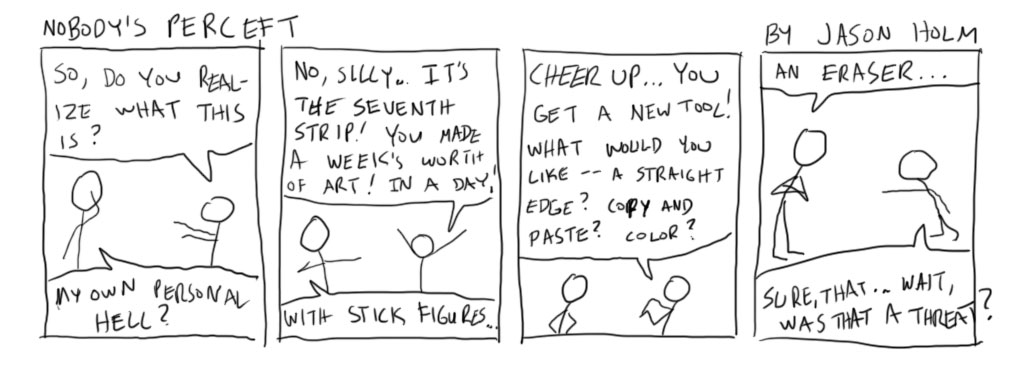 NOBODY'S PERCEFT
BY JASON HOLM
SO, DO YOU REAL-
IZE WHAT THIS
IS?
MY OWN PERSONAL
HELL?
NO, SILLY... IT'S
THE SEVENTH
STRIP! YOU MADE
A WEEK'S WORTH
OF ART! IN A DAY!
WITH STICK FIGURES...
CHEER UP... YOU
GET A NEW TOOL!
WHAT WOULD YOU
LIKE -- A STRAIGHT
EDGE? COPY AND
PASTE? COLOR?
AN ERASER...
SURE, THAT... WAIT,
WAS THAT A THREAT?